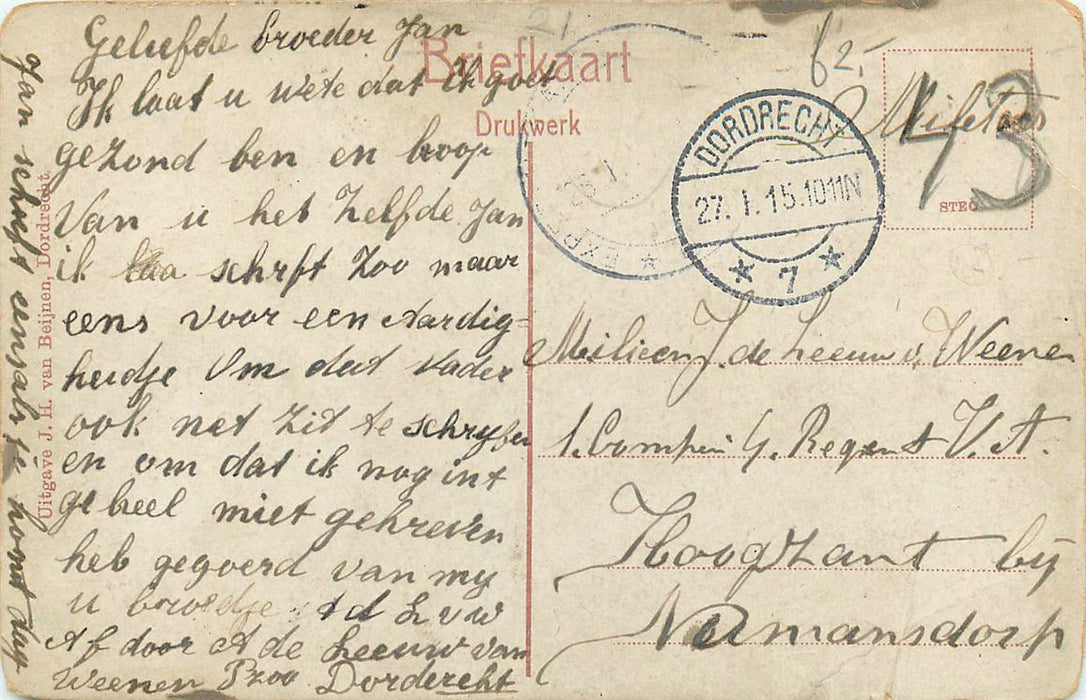 Geliefde broeder Jan
Ik laat u wete dat ik goet
gezond ben en hoop
van u het zelfde Jan
ik schrft zoo maar
eens voor een Aardig-
heidje Om dat vader
ook net zit te schryfen
en om dat ik nog int
geheel niet gehreven
heb gegoerd van my
u broedje A d L v W
Af door A de Leeuw van
Weenen Pzoo Dorderecht
Jan schrft eensals je komt dag
Uitgave J. H. van Beijnen, Dordrecht
Briefkaart
Drukwerk
DORDRECHT
27. 1. 15. 10-11 N
* 7 *
43
Milicien J. de Leeuw v. Weenen
1. Compen 4. Regent V. A.
Hoogzant by
Numansdorp